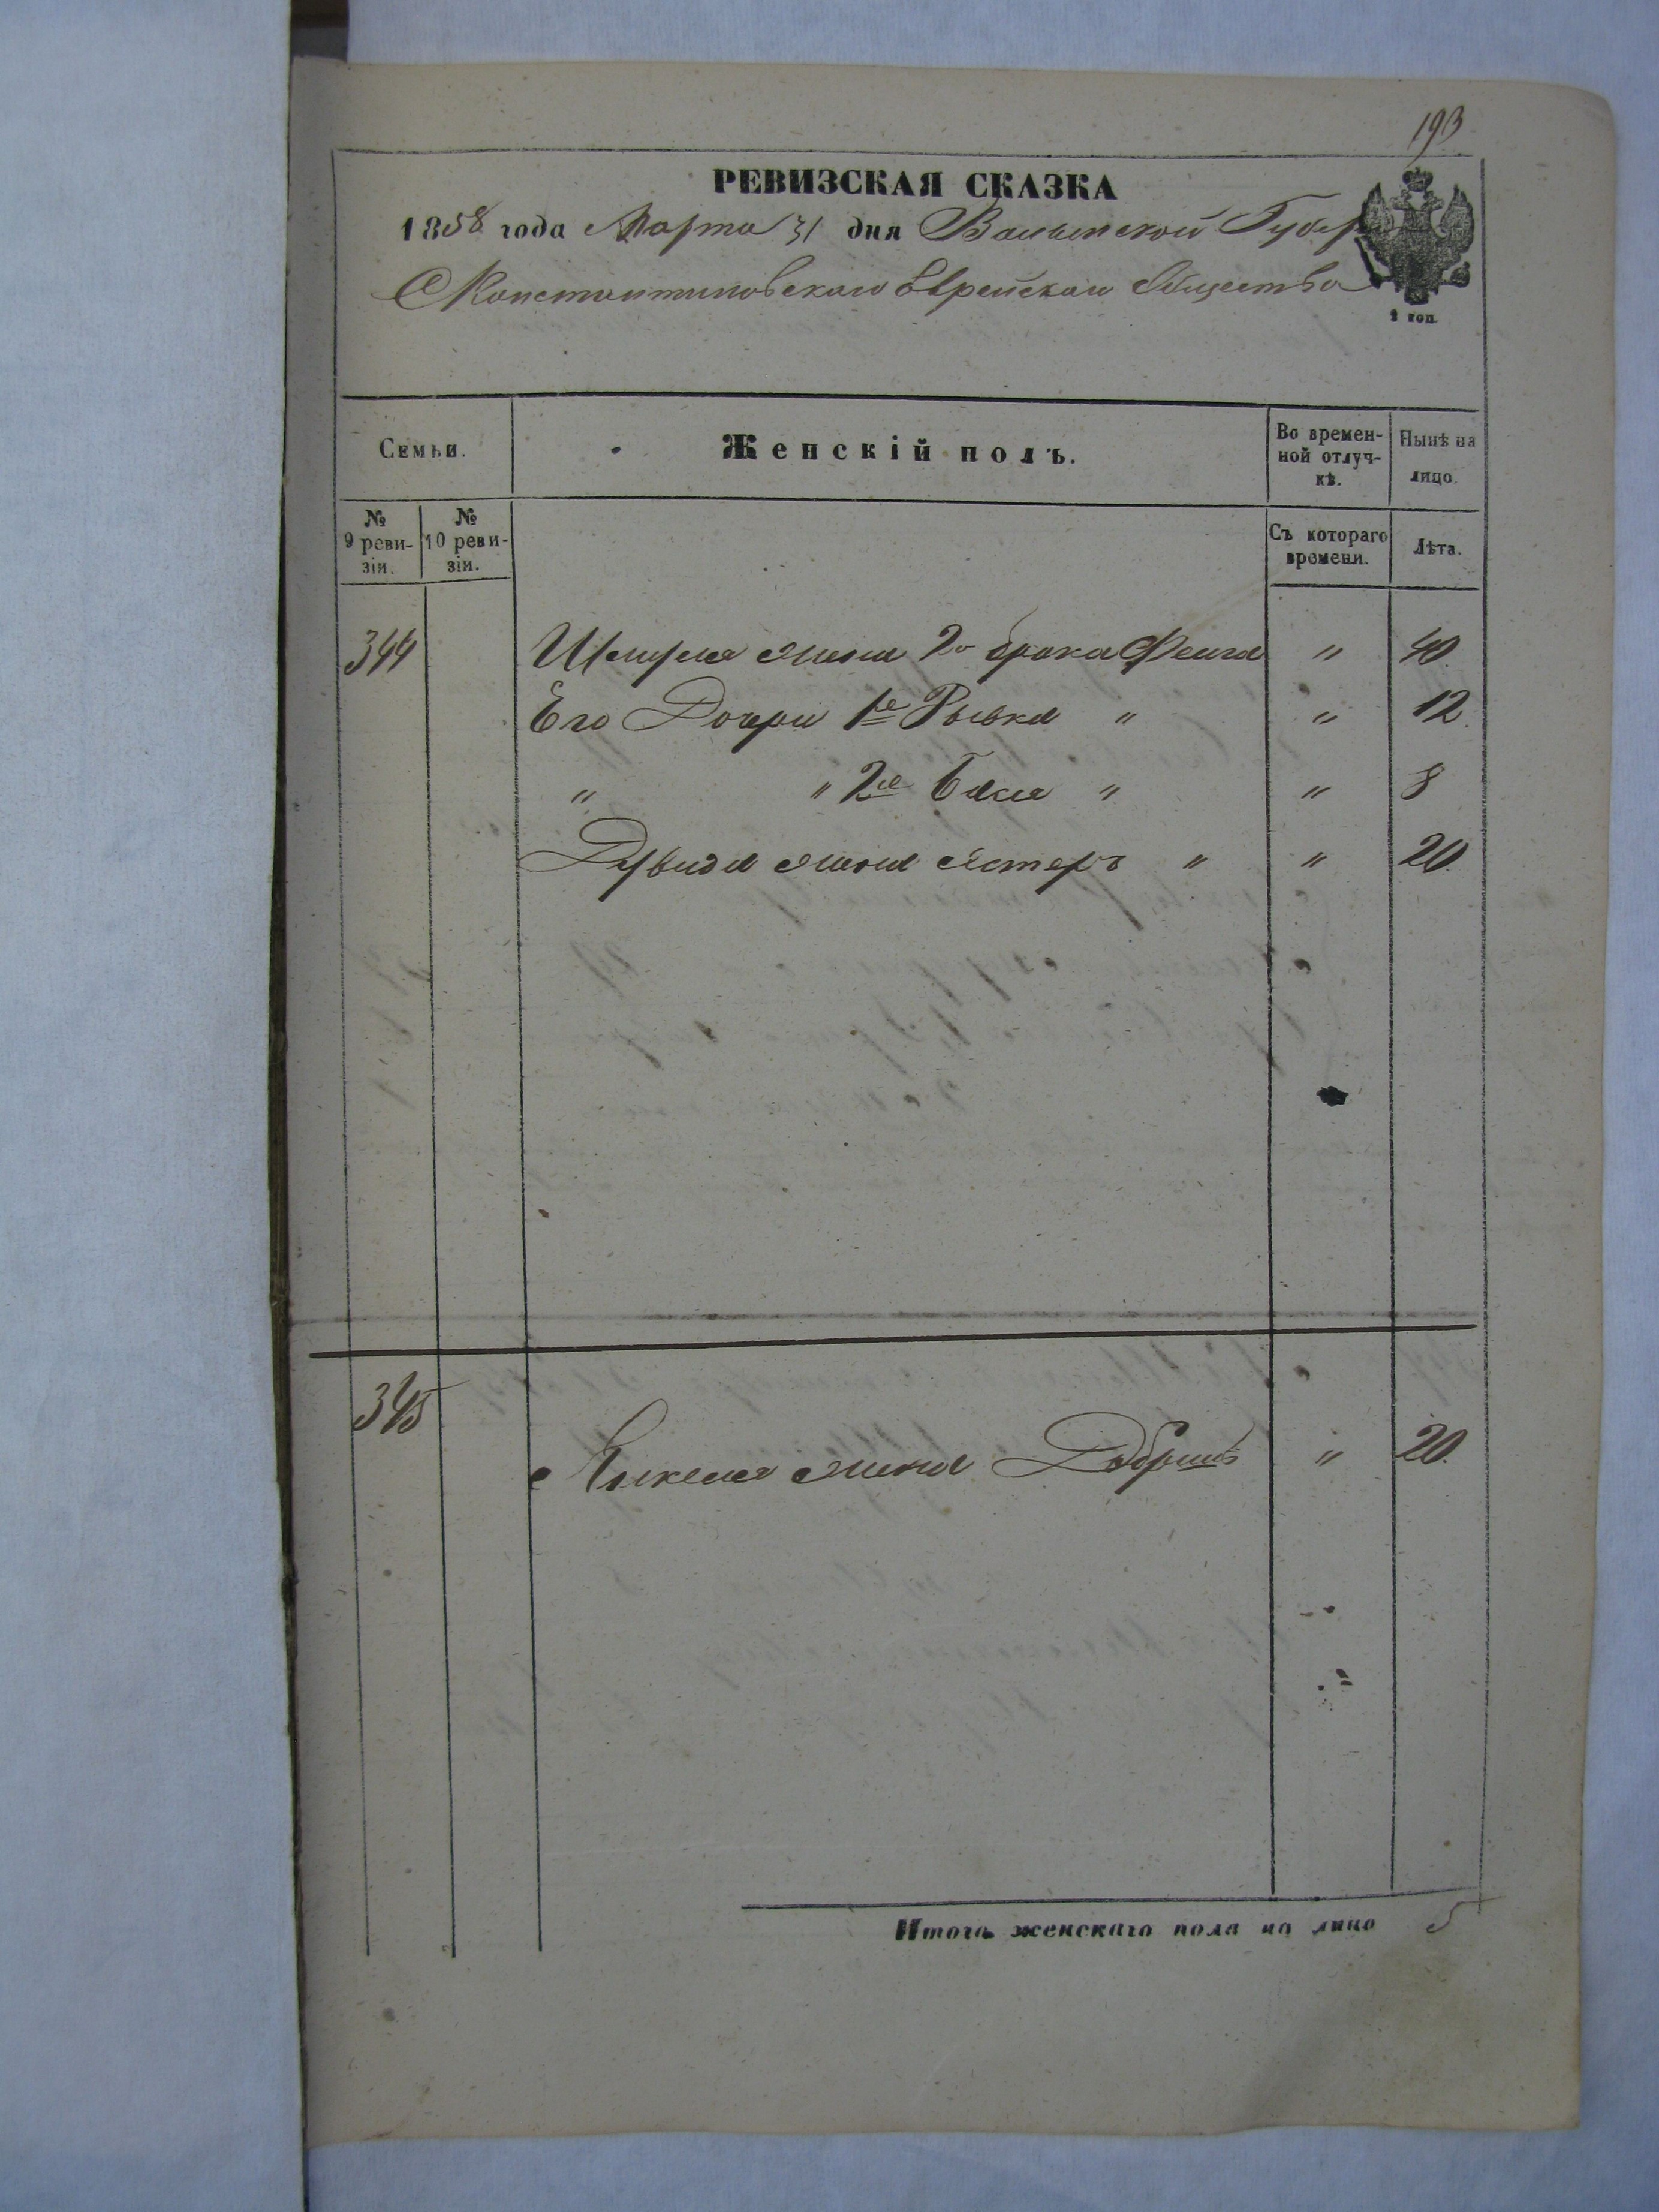 193
РЕВИЗСКАЯ СКАЗКА
1858 года Марта 31 дня Волынской Губер
Константиновскаго Еврейскаго Общества
2 коп.
Семьи. Женскій полъ. Во времен-ной отлуч-кѣ. Нынѣ на лицо.
№ 9 реви-зіи. № 10 реви-зіи. Съ котораго времени. Лѣта.
344 жена 2го брака Фейга " 40.
Его Дочери 1я Рывка " " 12.
" " 2я Бася " " 8
Дувида жена Естеръ " " 20.
345 Янкеля жена Добришъ " 20.
Итого женскаго пола на лицо 5